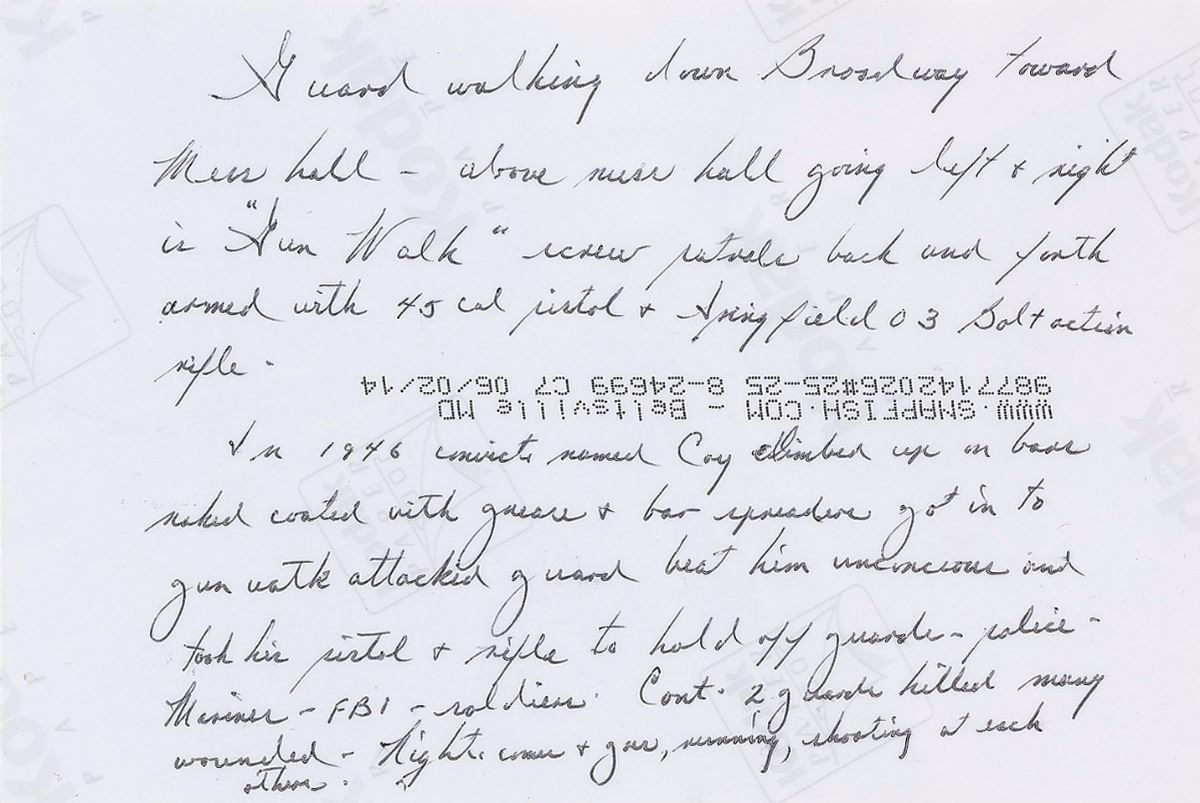 Guard walking down Broadway toward
Mess hall - above mess hall going left & right
is "Gun Walk" screw patrols back and forth
armed with 45 cal pistol & Springfield 03 Bolt action
rifle -
WWW.SNAPFISH.COM - Beltsville MD
9877142026#25-25 8-24699 C7 06/02/14
In 1946 convict named Coy climbed up on bars
naked coated with grease & bar spreaders got in to
gun walk attacked guard beat him unconcious and
took his pistol & rifle to hold off guards - police -
Marines - FBI - soldiers. Cont. 2 guards killed many
wounded - Night. come & gas, running, shooting at each
others.
Kodak
PAPER